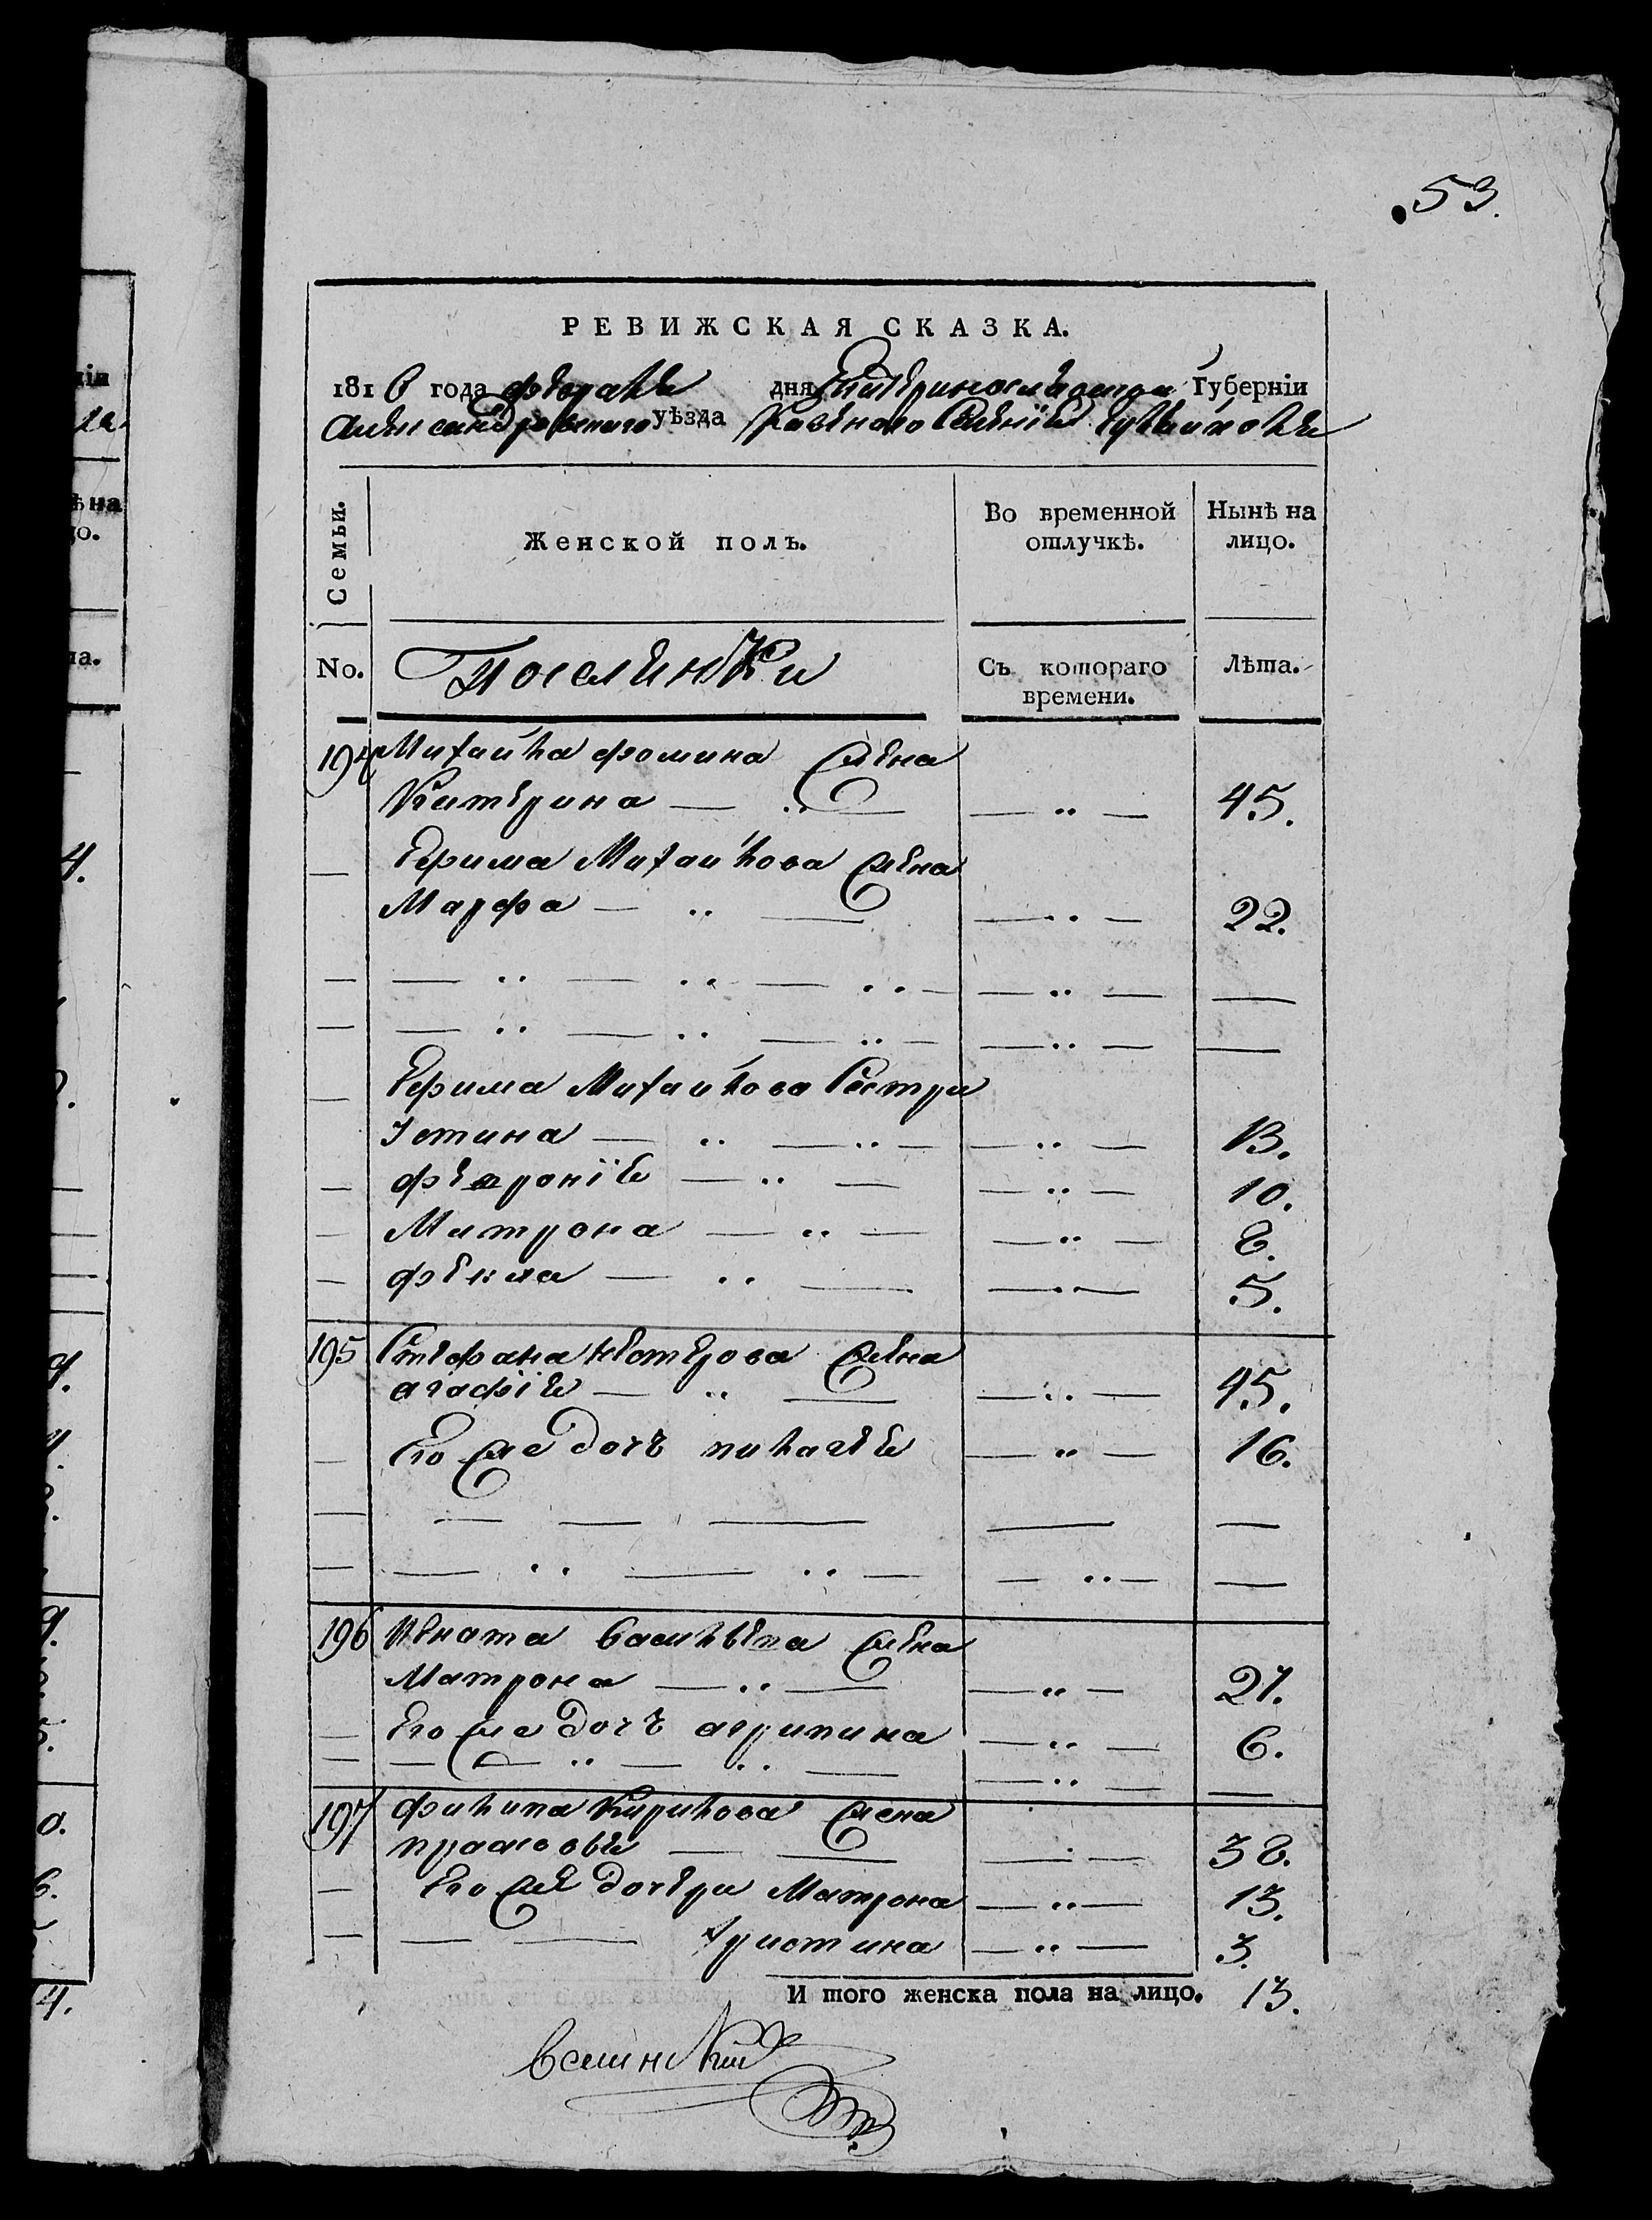 53.
РЕВИЖСКАЯ СКАЗКА.
1816 года февраля дня Екатеринославской Губерніи
Александровскаго уѣзда Казенного Селенія
Семьи.
Женской полъ.
Во временной отлучкѣ.
Нынѣ на лицо.
No.
Поселянки
Съ котораго времени.
Лѣта.
194 Михайла Фомина жена
Катерина — „ — — „ — 45.
Ефима Михайлова жена
Марфа — „ — — „ — 22.
Ефима Михайлова Сестри
Устина — „ — „ — — „ — 13.
Февронія — „ — — „ — 10.
Матрона — „ — — „ — 8.
Фекла — „ — — „ — 5.
195 Стефана Нестерова жена
агафія — „ — — „ — 45.
Его же дочь пилагея — „ — 16.
196 Игната Васильева жена
Матрона — „ — — „ — 27.
Его же дочь агрипина — „ — 6.
197 Филипа Кирилова жена
прасковя — — — „ — 38.
Его же дочери Матрона — „ — 13.
— — христина — „ — 3.
И того женска пола на лицо. 13.